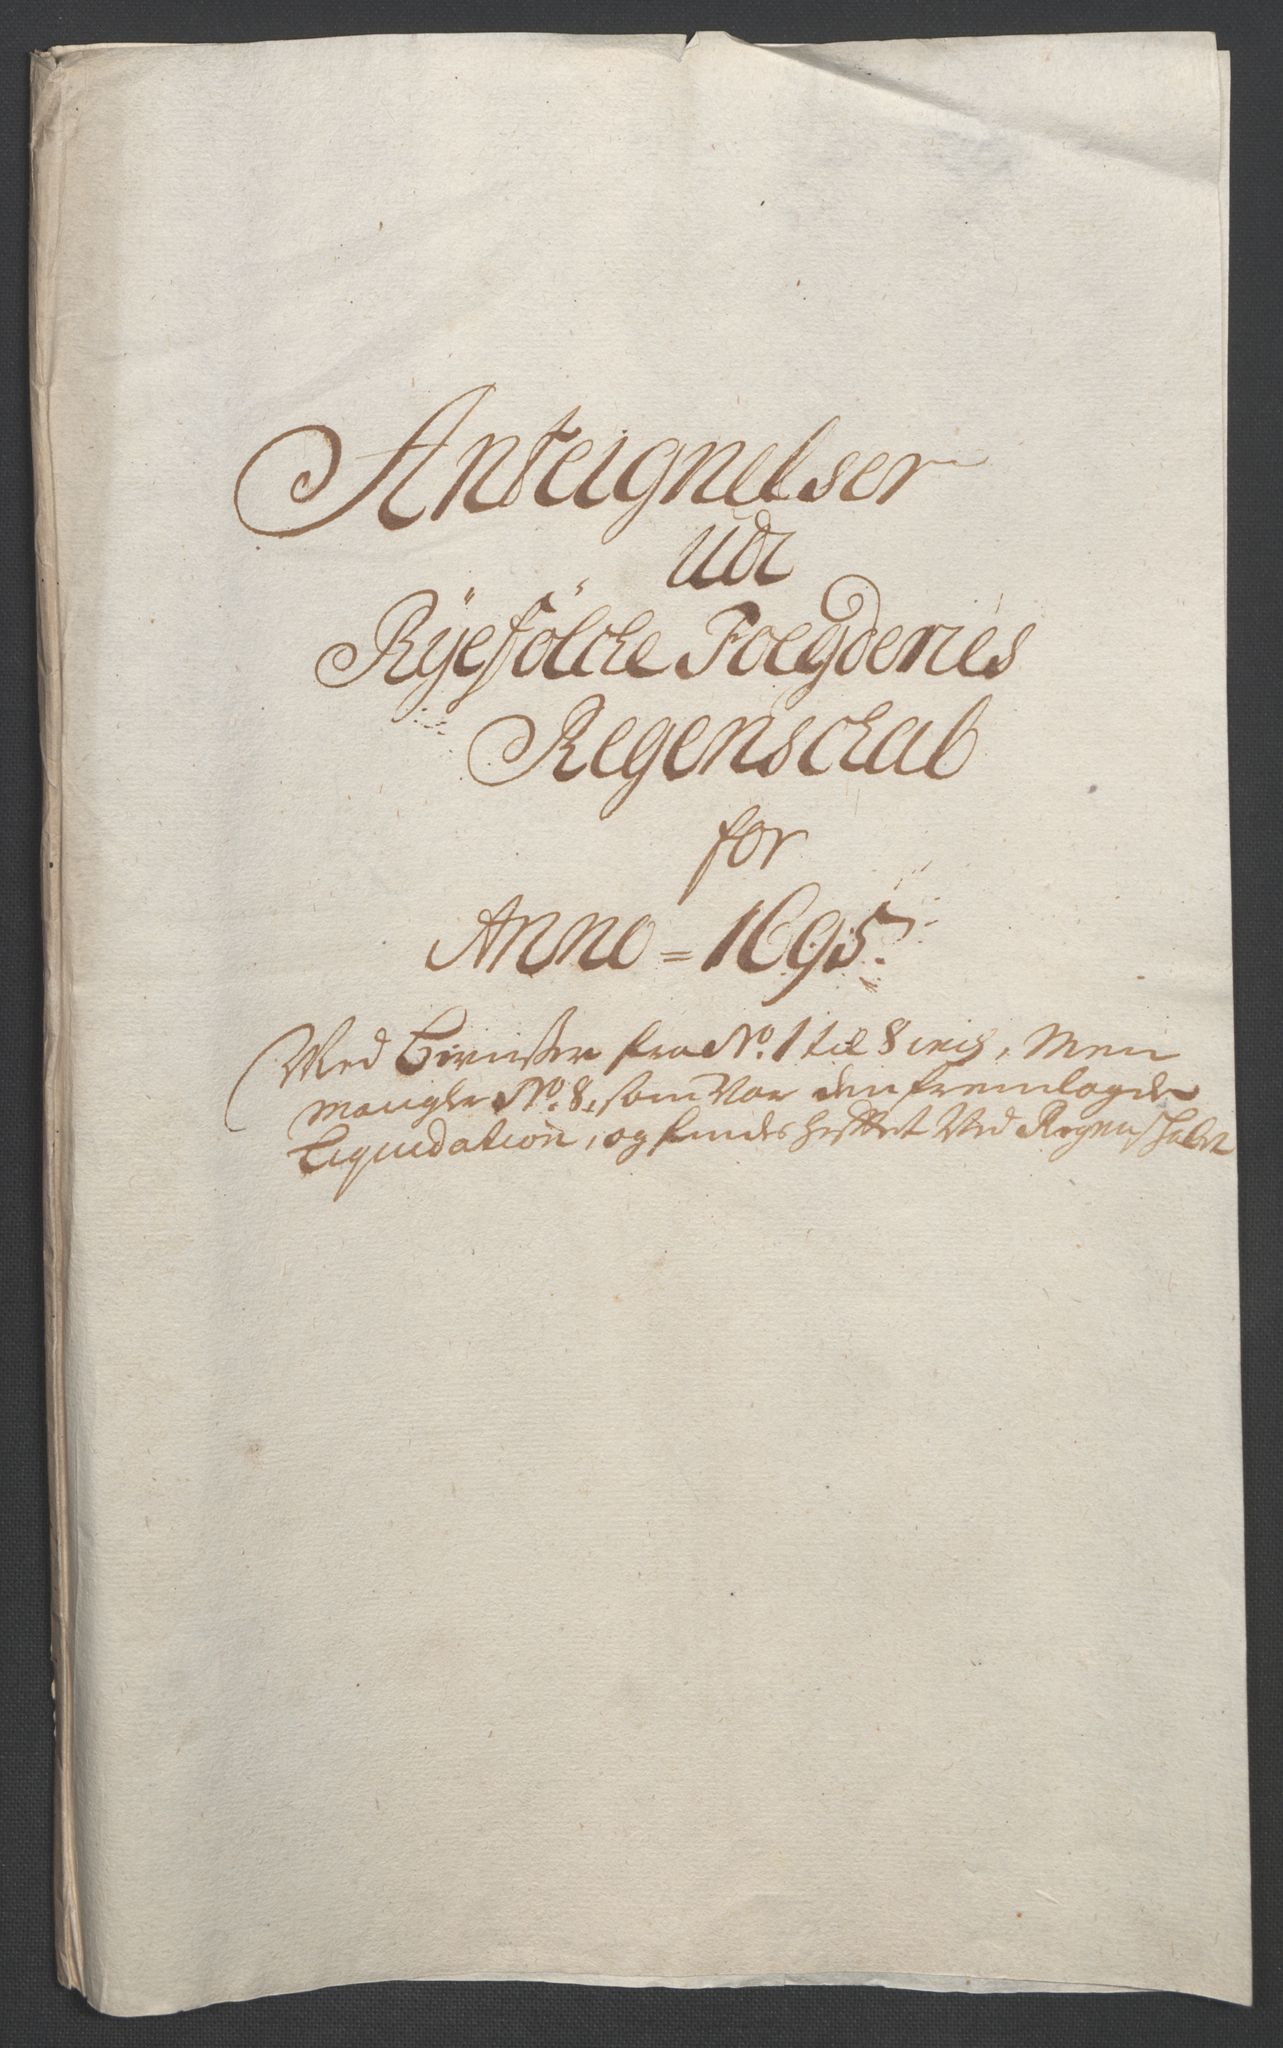 Anteignelser
udi
Ryefölcke Foegderies
Regenschab
for
Anno = 1695.
Med Beviisser fra No. 1 til 8 incl, Men
mangler No. 8, som Var den fremlagde
Liquidation, og findes hefftet Ved Regenschabet